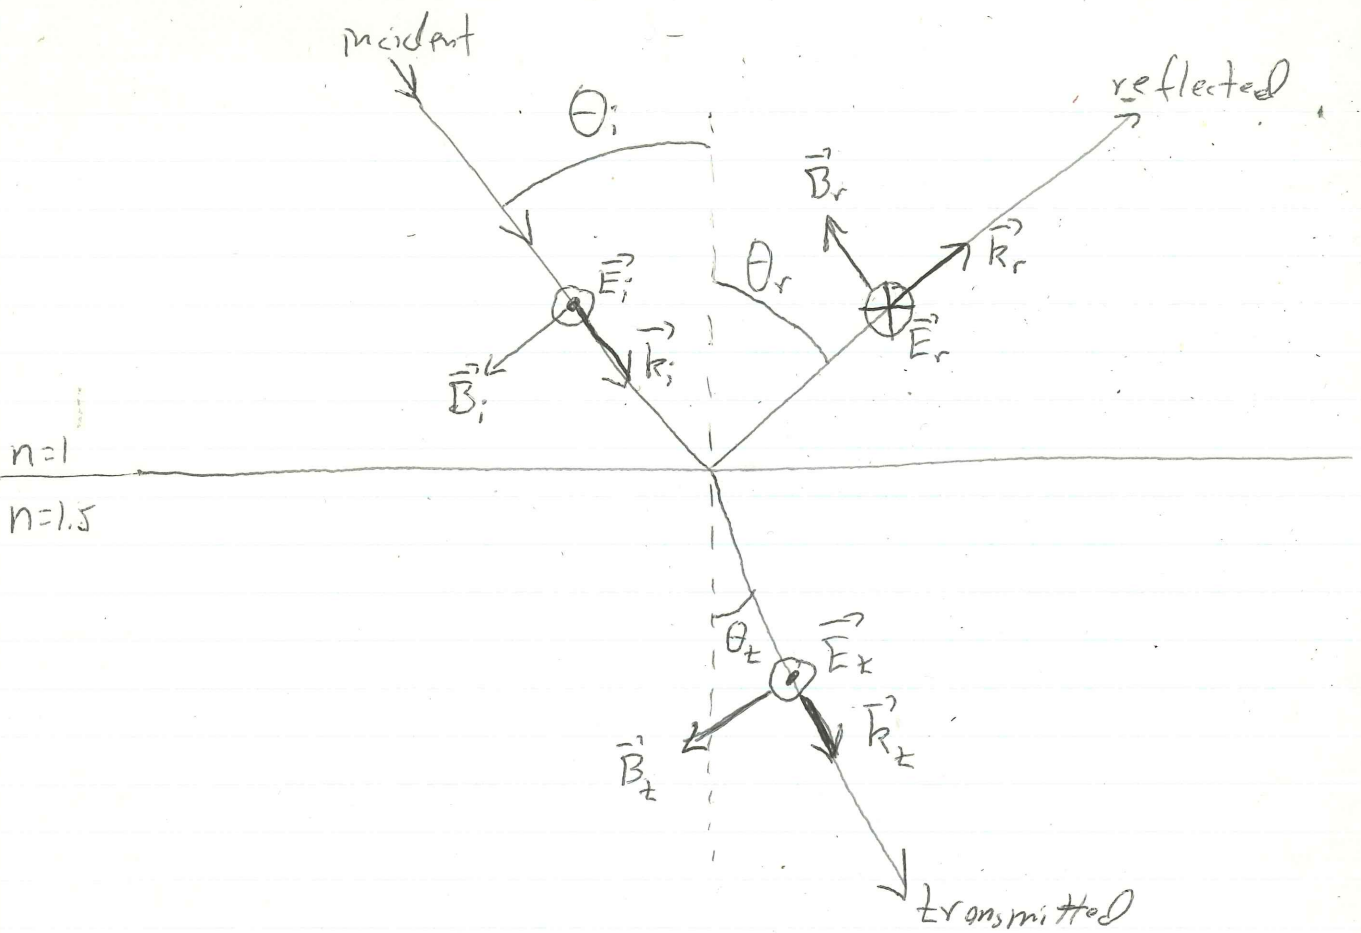 incident
reflected
θᵢ
B⃗ᵣ
θᵣ
k⃗ᵣ
E⃗ᵢ
E⃗ᵣ
k⃗ᵢ
B⃗ᵢ
n=1
n=1.5
θₜ
E⃗ₜ
k⃗ₜ
B⃗ₜ
transmitted